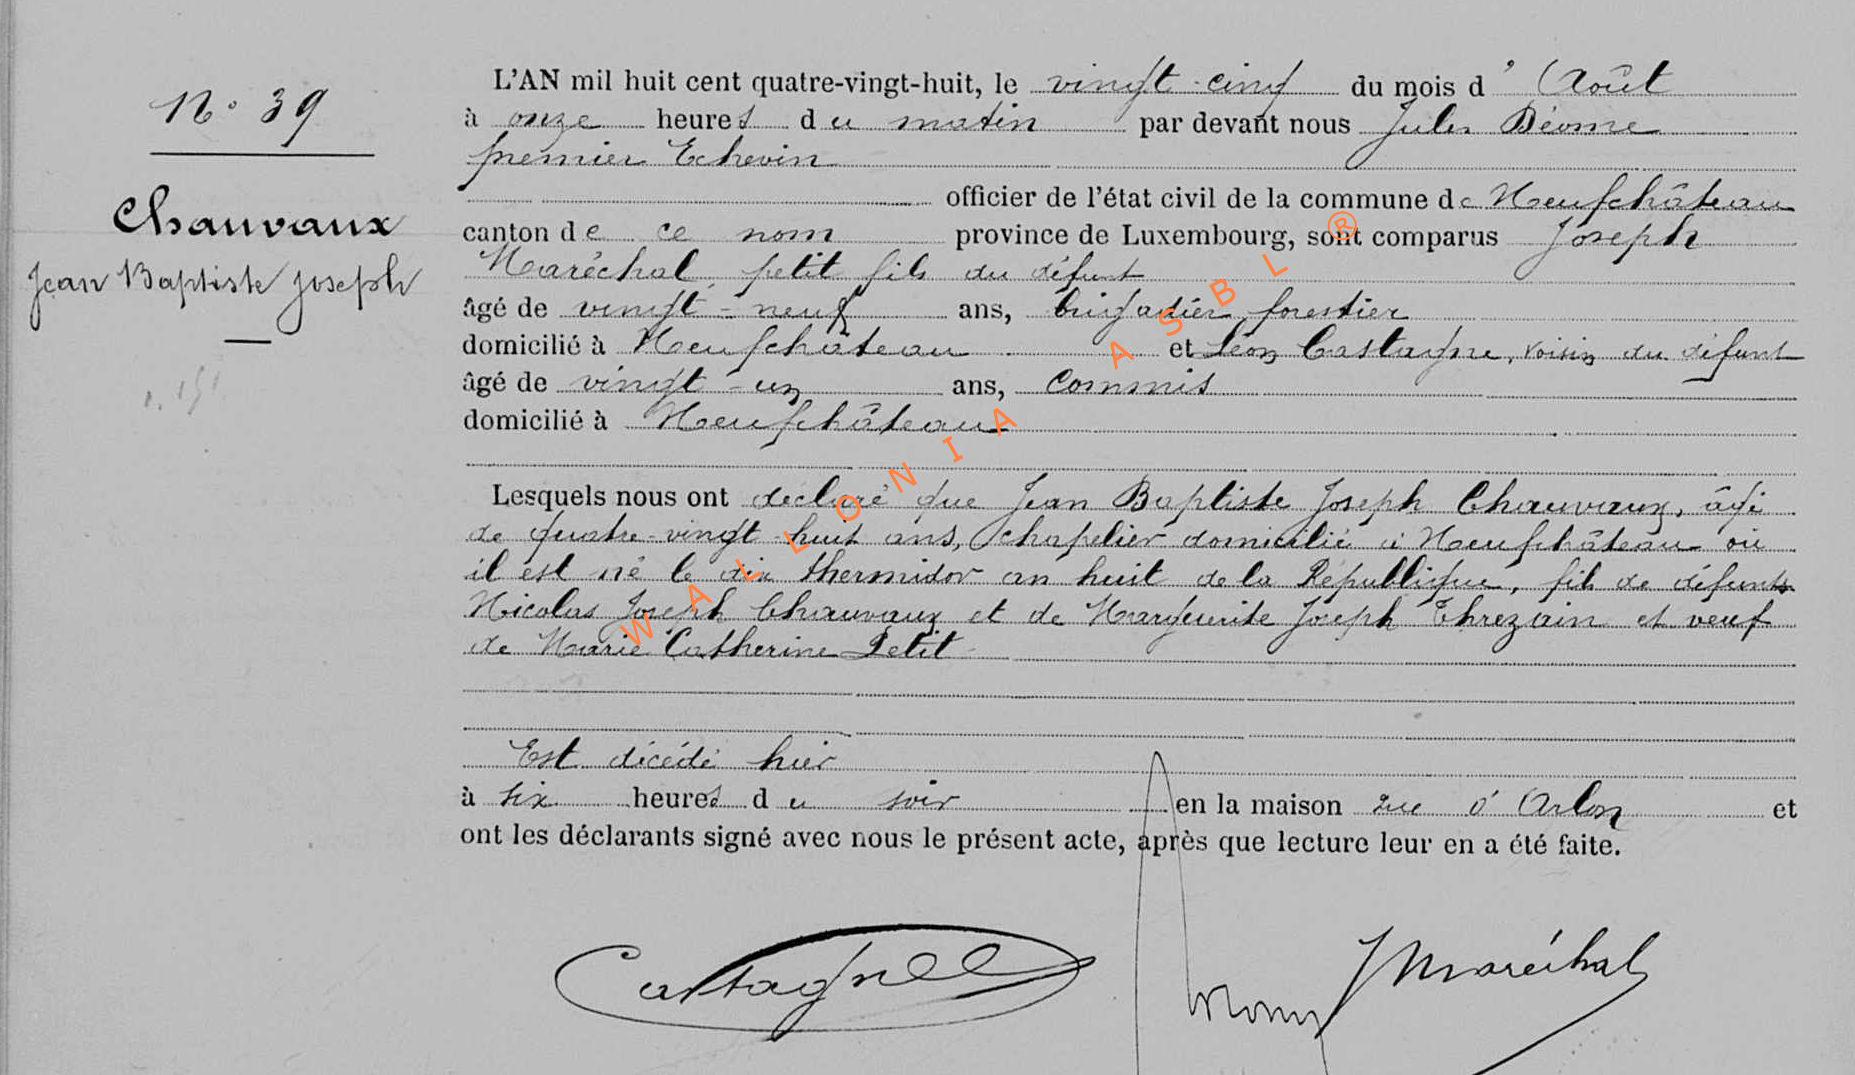 N° 39
Chauvaux
Jean Baptiste Joseph
L'AN mil huit cent quatre-vingt-huit, le vingt-cinq du mois d'Août
à onze heures du matin par devant nous Jules
premier Echevin
officier de l'état civil de la commune de Neufchâteau
canton de ce nom province de Luxembourg, sont comparus Joseph
Maréchal, petit fils du défunt
âgé de vingt-neuf ans, brigadier forestier
domicilié à Neufchâteau et Léon Castagne, voisin du défunt
âgé de vingt-un ans, commis
domicilié à Neufchâteau
Lesquels nous ont déclaré que Jean Baptiste Joseph Chauvaux, âgé
de quatre-vingt-huit ans, chapelier domicilié à Neufchâteau où
il est né le dix thermidor an huit de la République, fils de défunts
Nicolas Joseph Chauvaux et de Marguerite Joseph Threzain et veuf
de Marie Catherine Petit
Est décédé hier
à six heures du soir en la maison rue d'Arlon et
ont les déclarants signé avec nous le présent acte, après que lecture leur en a été faite.
Castagne
J Maréchal
WALLONIA ASBL ®